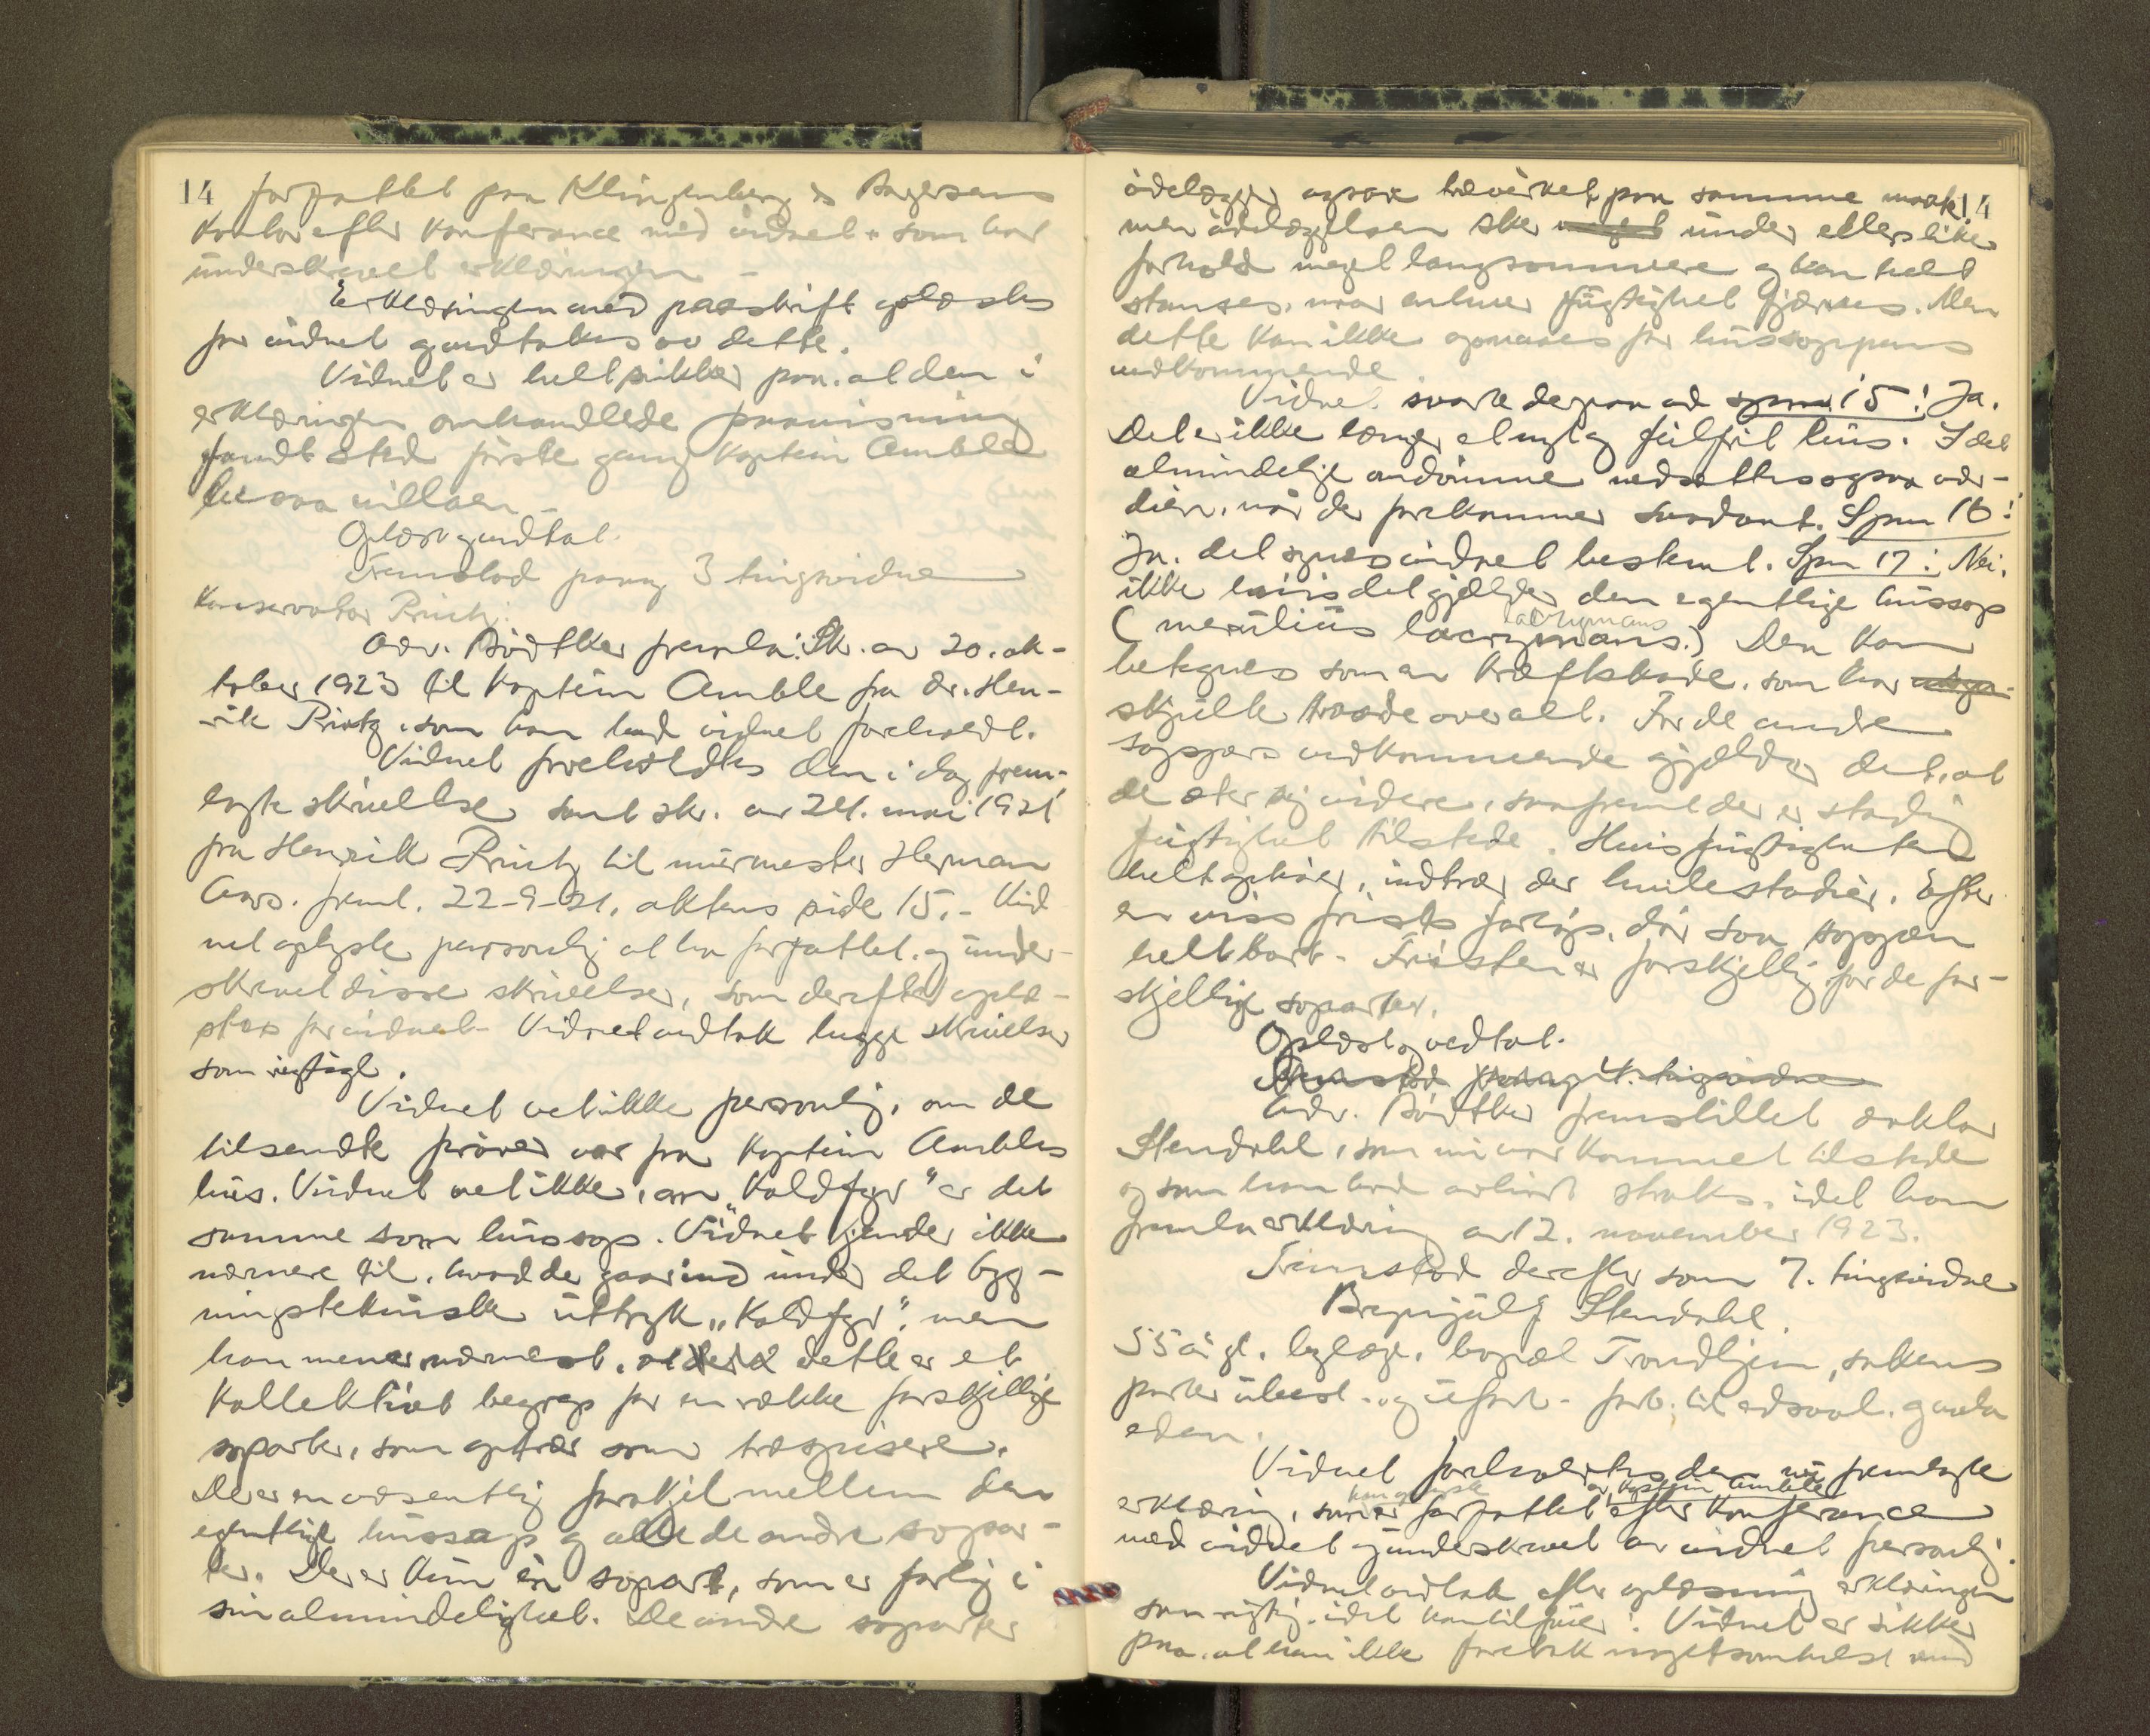 14 forfattet paa Klingenberg & Aagesens
kontor efter konferance med vidnet som har
underskrevet erklæringen -
Erklæringen med paaskrift oplæstes
for vidnet og vedtokes av dette.
Vidnet er helt sikker paa, at den i
erklæringen omhandlede paavisning
fandt sted første gang kaptein Amble
besaa villaen -
Oplæst og vedtat.
Fremstod paany 3 tingsvidne
Konservator Printz.
Adv. Bödtker fremla: Skr. av 20. ok-
tober 1923 til kaptein Amble fra dr. Hen-
rik Printz, som han bad vidnet foreholdt.
Vidnet foreholdtes den i dag frem-
lagte skrivelse samt skr. av 24. mai 1921
fra Henrik Printz til murmester Herman
Aas. freml. 22-9-21, aktens side 15. - Vid
net oplyste personlig at ha forfattet og under-
skrevet disse skrivelser, som derefter oplæ-
stes for vidnet - Vidnet vedtok begge skrivelser
som rigtige.
Vidnet vet ikke personlig, om de
tilsendte prøver var fra kaptein Ambles
hus. Vidnet vet ikke, om "Koldfyr" er det
samme som hussop. Vidnet kjender ikke
nærmere til, hvad der gaar ind under det byg-
ningstekniske uttryk "Koldfyr", men
han mener nærmest, at dette er et
kollektivt begrep for en række forskjellige
soparter, som optrær som træspisere.
Der er en væsentlig forskjel mellem den
egentlige hussop og alle de andre sopar-
ter. Der er kun én sopart, som er farlig i
sin almindelighet. De andre soparter
ødelægger ogsaa trævirket paa samme maate 14
men ødelæggelsen sker meget under ellers like
forhold meget langsommere og kan helt
stanses, naar enhver fugtighet fjærnes. Men
dette kan ikke opnaaes for hussoppens
vedkommende.
Vidnet svarte derpaa ad spm 15: Ja.
Det er ikke længer et nyt og feilfrit hus. I det
almindelige omdømme nedsættes ogsaa vær-
dien, når der forekommer saadant. Spm 16:
Ja. det synes vidnet bestemt. Spm 17: Nei,
ikke hvis det gjælder den egentlige hussop
lacrymans
(merulius lacrymans.) Den kan
betegnes som en kræftskade, som har
skjulte traade overalt. For de andre
soppers vedkommende gjælder det, at
de æter sig videre, saafremt der er stadig
fugtighet tilstede. Hvis fugtigheten
helt ophører, indtrær der hvilestadier. Efter
en viss frists forløp, dør saa soppen
helt bort. - Fristen er forskjellig for de for-
skjellige soparter.
Oplæst og vedtat.
Fremstod paany 4. tingsvidne
Adv. Bödtker fremstillet doktor
Stendahl, som nu var kommet tilstede
og som han bad avhørt straks, idet han
fremla erklæring av 12. november 1923.
Fremstod derefter som 7. tingsvidne
Brynjulf Stendahl.
55 år gl. bylæge, bopæl Trondhjem, sakens
parter ubesl. og uforb. - forb. til edsavl. og avla
eden.
Vidnet foreholdtes den nu fremlagte
av kaptein Amble
erklæring, som er forfattet efter konferance
med vidnet og underskrevet av vidnet personlig.
Vidnet vedtok efter oplæsning erklæringen
som rigtig, idet han tilføier: Vidnet er sikker
paa, at han ikke foretok nogetsomhelst med